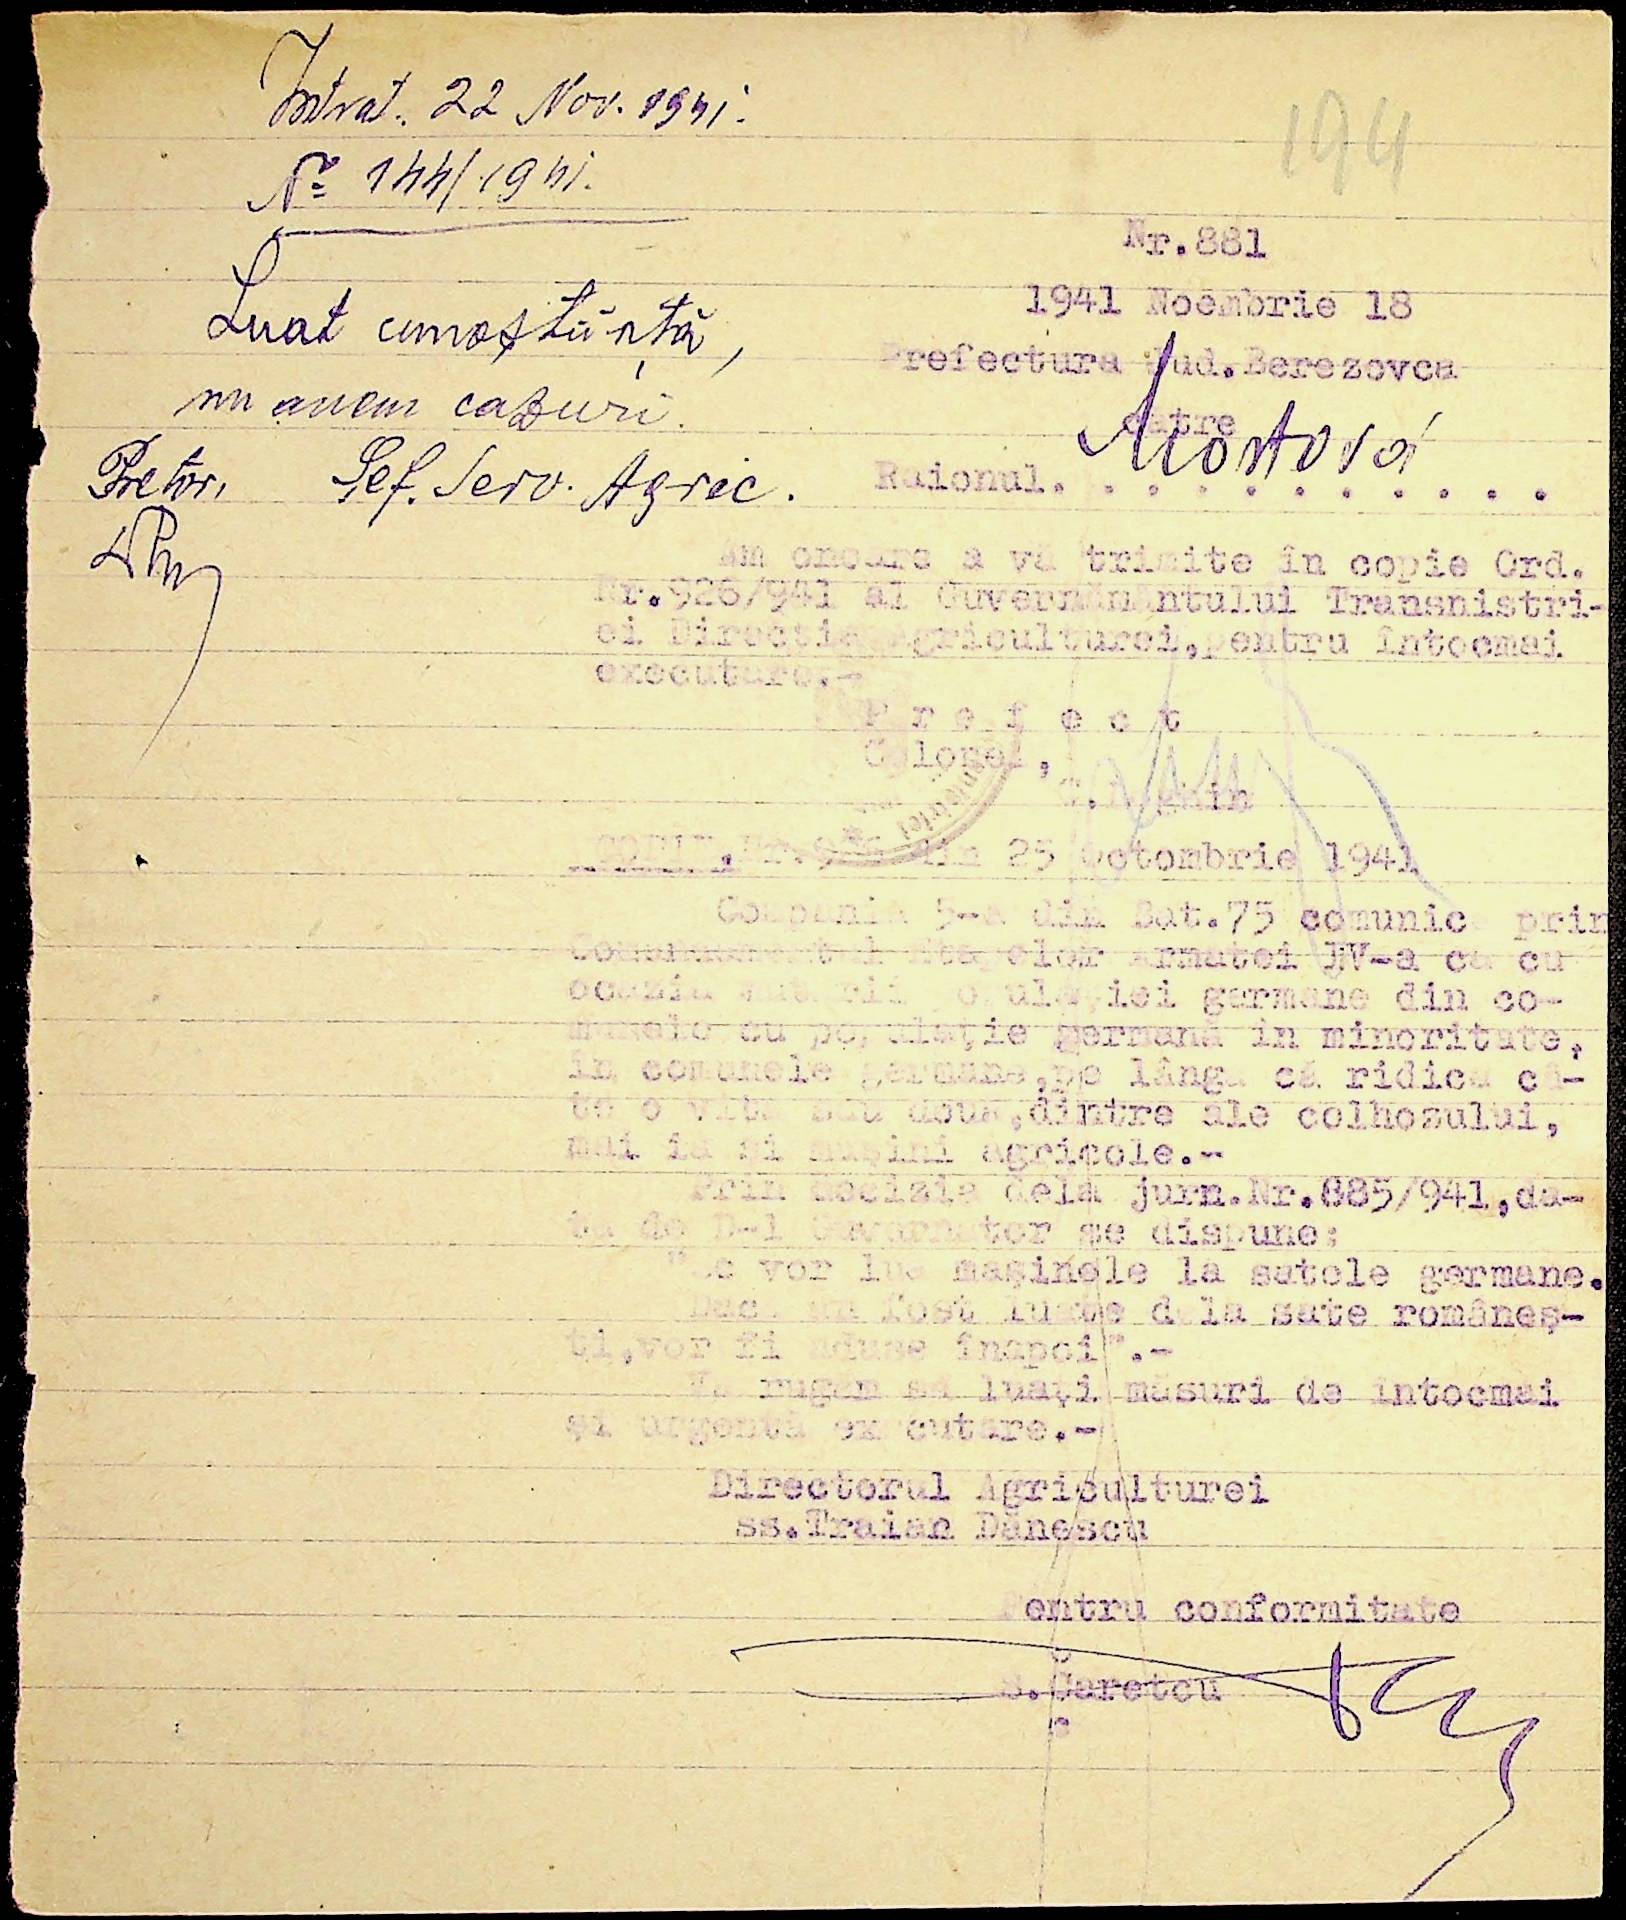 Intrat. 22 Nov. 1941.
№ 144/1941.
Luat cunoștiință,
nu avem cazuri.
Pretor, Șef. Serv. Agric.
194
Nr.881
1941 Noembrie 18
Prefectura Jud.Berezovca
catre
Raionul. Mostovoi . . . . . . . . . .
Am onoare a vă trimite în copie Ord.
Nr.926/941 al Guvernământului Transnistri-
ei Directia Agriculturei,pentru întocmai
executare.-
P r e f e c t
Colonel,
COPIE.Nr.926 din 25 Octombrie 1941
Compania 5-a din Bat.75 comunică prin
Etapelor Armatei IV-a ca cu
ocazia populației germane din co-
munele cu populație germană in minoritate,
in comunele germane,pe lângă că ridica câ-
te o vita sau doua,dintre ale colhosului,
mai ia și mașini agricole.-
Prin decizia dela jurn.Nr.885/941,da-
ta de D-l Guvernator se dispune:
"Se vor lua mașinele la satele germane.
Daca au fost luate dela sate româneș-
ti,vor fi aduse înapoi".-
Va rugam să luați măsuri de intocmai
și urgentă executare.-
Directorul Agriculturei
ss.Traian Dănescu
Pentru conformitate
S.Caretcu